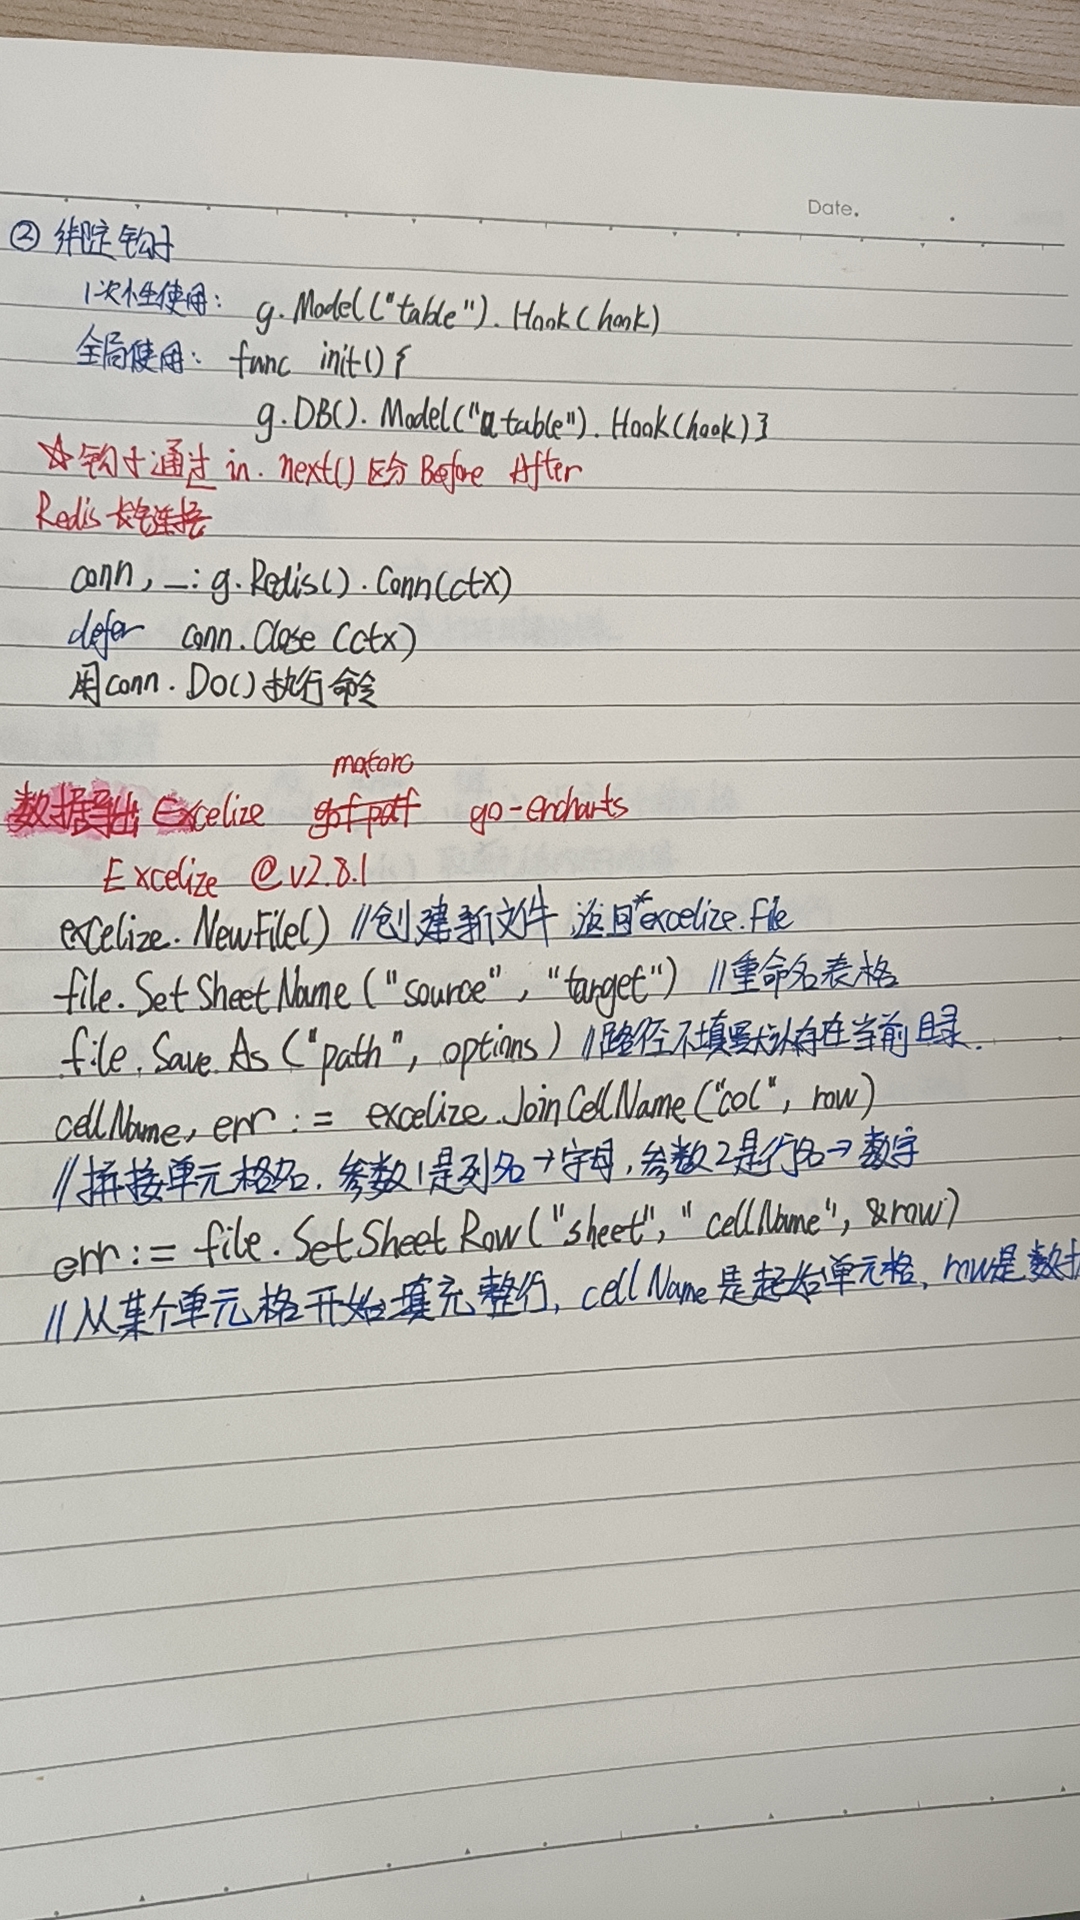 Date.
② 绑定钩子
1次性使用: g.Model("table").Hook(hook)
全局使用: func init(){
g.DB().Model("a table").Hook(hook)}
☆钩子通过 in.next() 区分 Before After
Redis 长连接
conn, _: g.Redis().Conn(ctx)
defer conn.Close(ctx)
用conn.Do()执行命令
maroto
数据导出 Excelize gofpdf go-encharts
Excelize @v2.8.1
excelize.NewFile() //创建新文件 返回*excelize.File
file.SetSheetName("source", "target") //重命名表格
file.Save As("path", options) //路径不填默认存在当前目录.
cellName, err := excelize.JoinCellName("col", row)
//拼接单元格名, 参数1是列名→字母, 参数2是行名→数字
err := file.SetSheetRow("sheet", "cellName", &row)
//从某个单元格开始填充整行, cellName是起始单元格, row是数